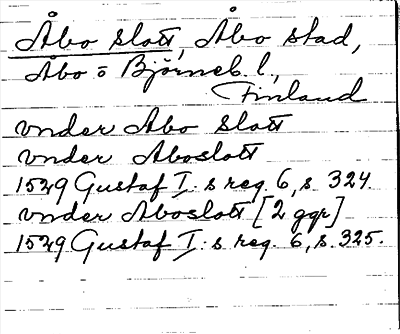 Åbo slott, Åbo stad,
Åbo o Björneb. l.,
Finland
vnder Abo slott
vnder Aboslott
1529 Gustaf I:s reg. 6, s. 324.
vnder Aboslott [2 ggr]
1529 Gustaf I:s reg. 6, s. 325.